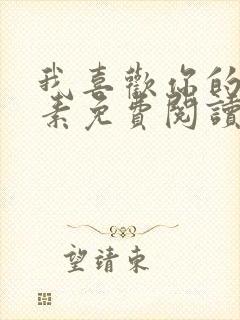 我喜歡你的
素免費閱讀
望靖東